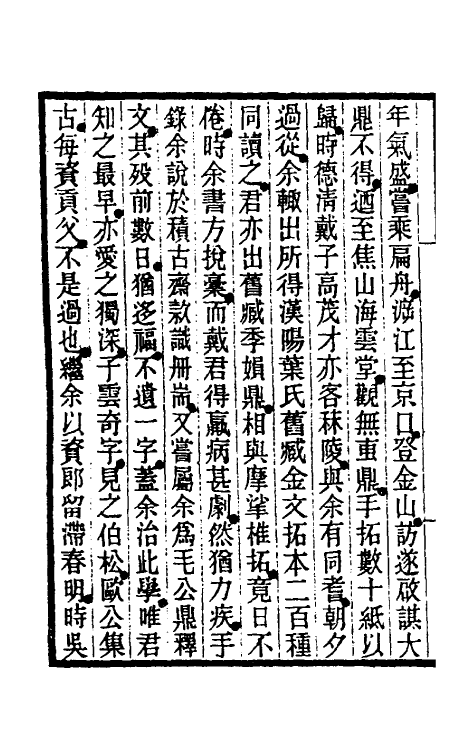 年氣盛嘗乘扁舟泝江至京口登金山訪遂啟諆大
鼎不得迺至焦山海雲堂觀無叀鼎手拓數十紙以
歸時德清戴子高茂才亦客秣陵與余有同耆朝夕
過從余輙出所得漢陽葉氏舊臧金文拓本二百種
同讀之君亦出舊臧季娟鼎相與摩挲椎拓竟日不
倦時余書方挩稾而戴君得羸病甚劇然猶力疾手
錄余說於積古齋款識冊耑又嘗屬余爲毛公鼎釋
文其歿前數日猶迻福不遺一字蓋余治此學唯君
知之最早亦愛之獨深子雲奇字見之伯松歐公集
古每資貢父不是過也繼余以資郎留滯春明時吳